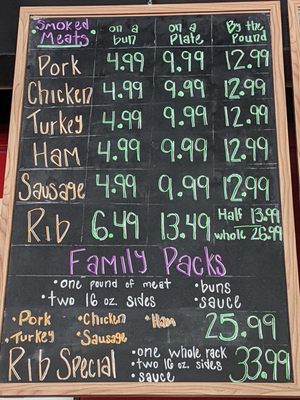 Smoked Meats on a bun on a Plate By the Pound
Pork 4.99 9.99 12.99
Chicken 4.99 9.99 12.99
Turkey 4.99 9.99 12.99
Ham 4.99 9.99 12.99
Sausage 4.99 9.99 12.99
Rib 6.49 13.49 Half 13.99 whole 26.99
Family Packs
• one pound of meat • buns
• two 16 oz. sides • sauce
• Pork • Chicken • Ham 25.99
• Turkey • Sausage
Rib Special • one whole rack 33.99
• two 16 oz. sides
• sauce